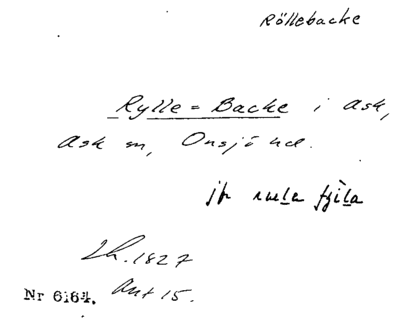 Röllebacke
Rylle=Backe i Ask,
Ask sn, Onsjö hd.
jfr
Lh. 1827
Nr 6164. Ant 15.